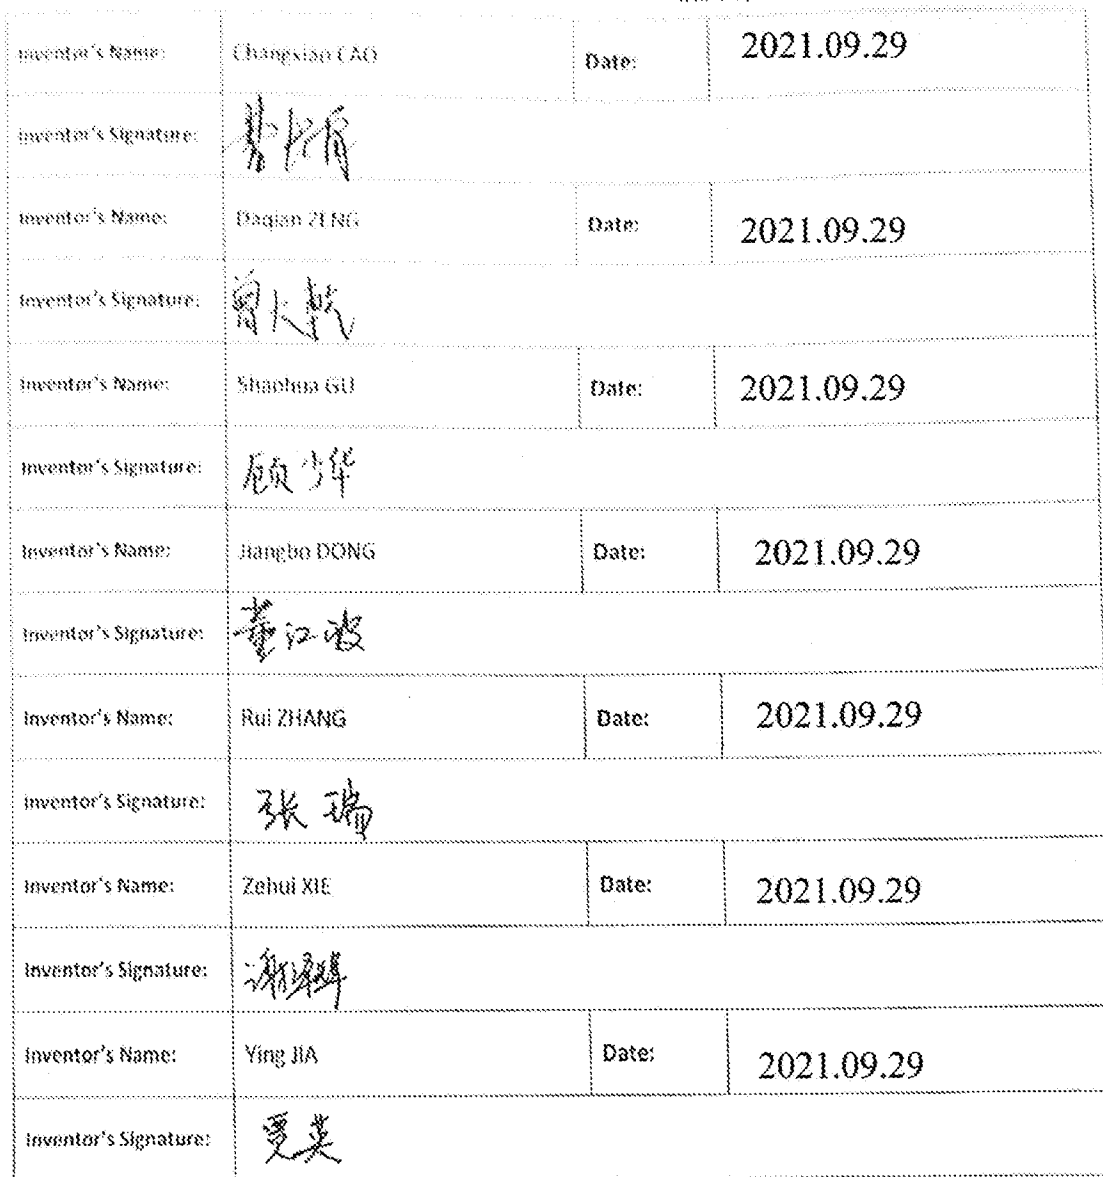 Inventor's Name: Changxian CAO Date: 2021.09.29
Inventor's Signature:
Inventor's Name: Daqian ZENG Date: 2021.09.29
Inventor's Signature: 曾大
Inventor's Name: Shaohua GU Date: 2021.09.29
Inventor's Signature: 顾少华
Inventor's Name: Jiangbo DONG Date: 2021.09.29
Inventor's Signature: 董江波
Inventor's Name: Rui ZHANG Date: 2021.09.29
Inventor's Signature: 张瑞
Inventor's Name: Zehui XIE Date: 2021.09.29
Inventor's Signature: 谢泽辉
Inventor's Name: Ying JIA Date: 2021.09.29
Inventor's Signature: 贾英